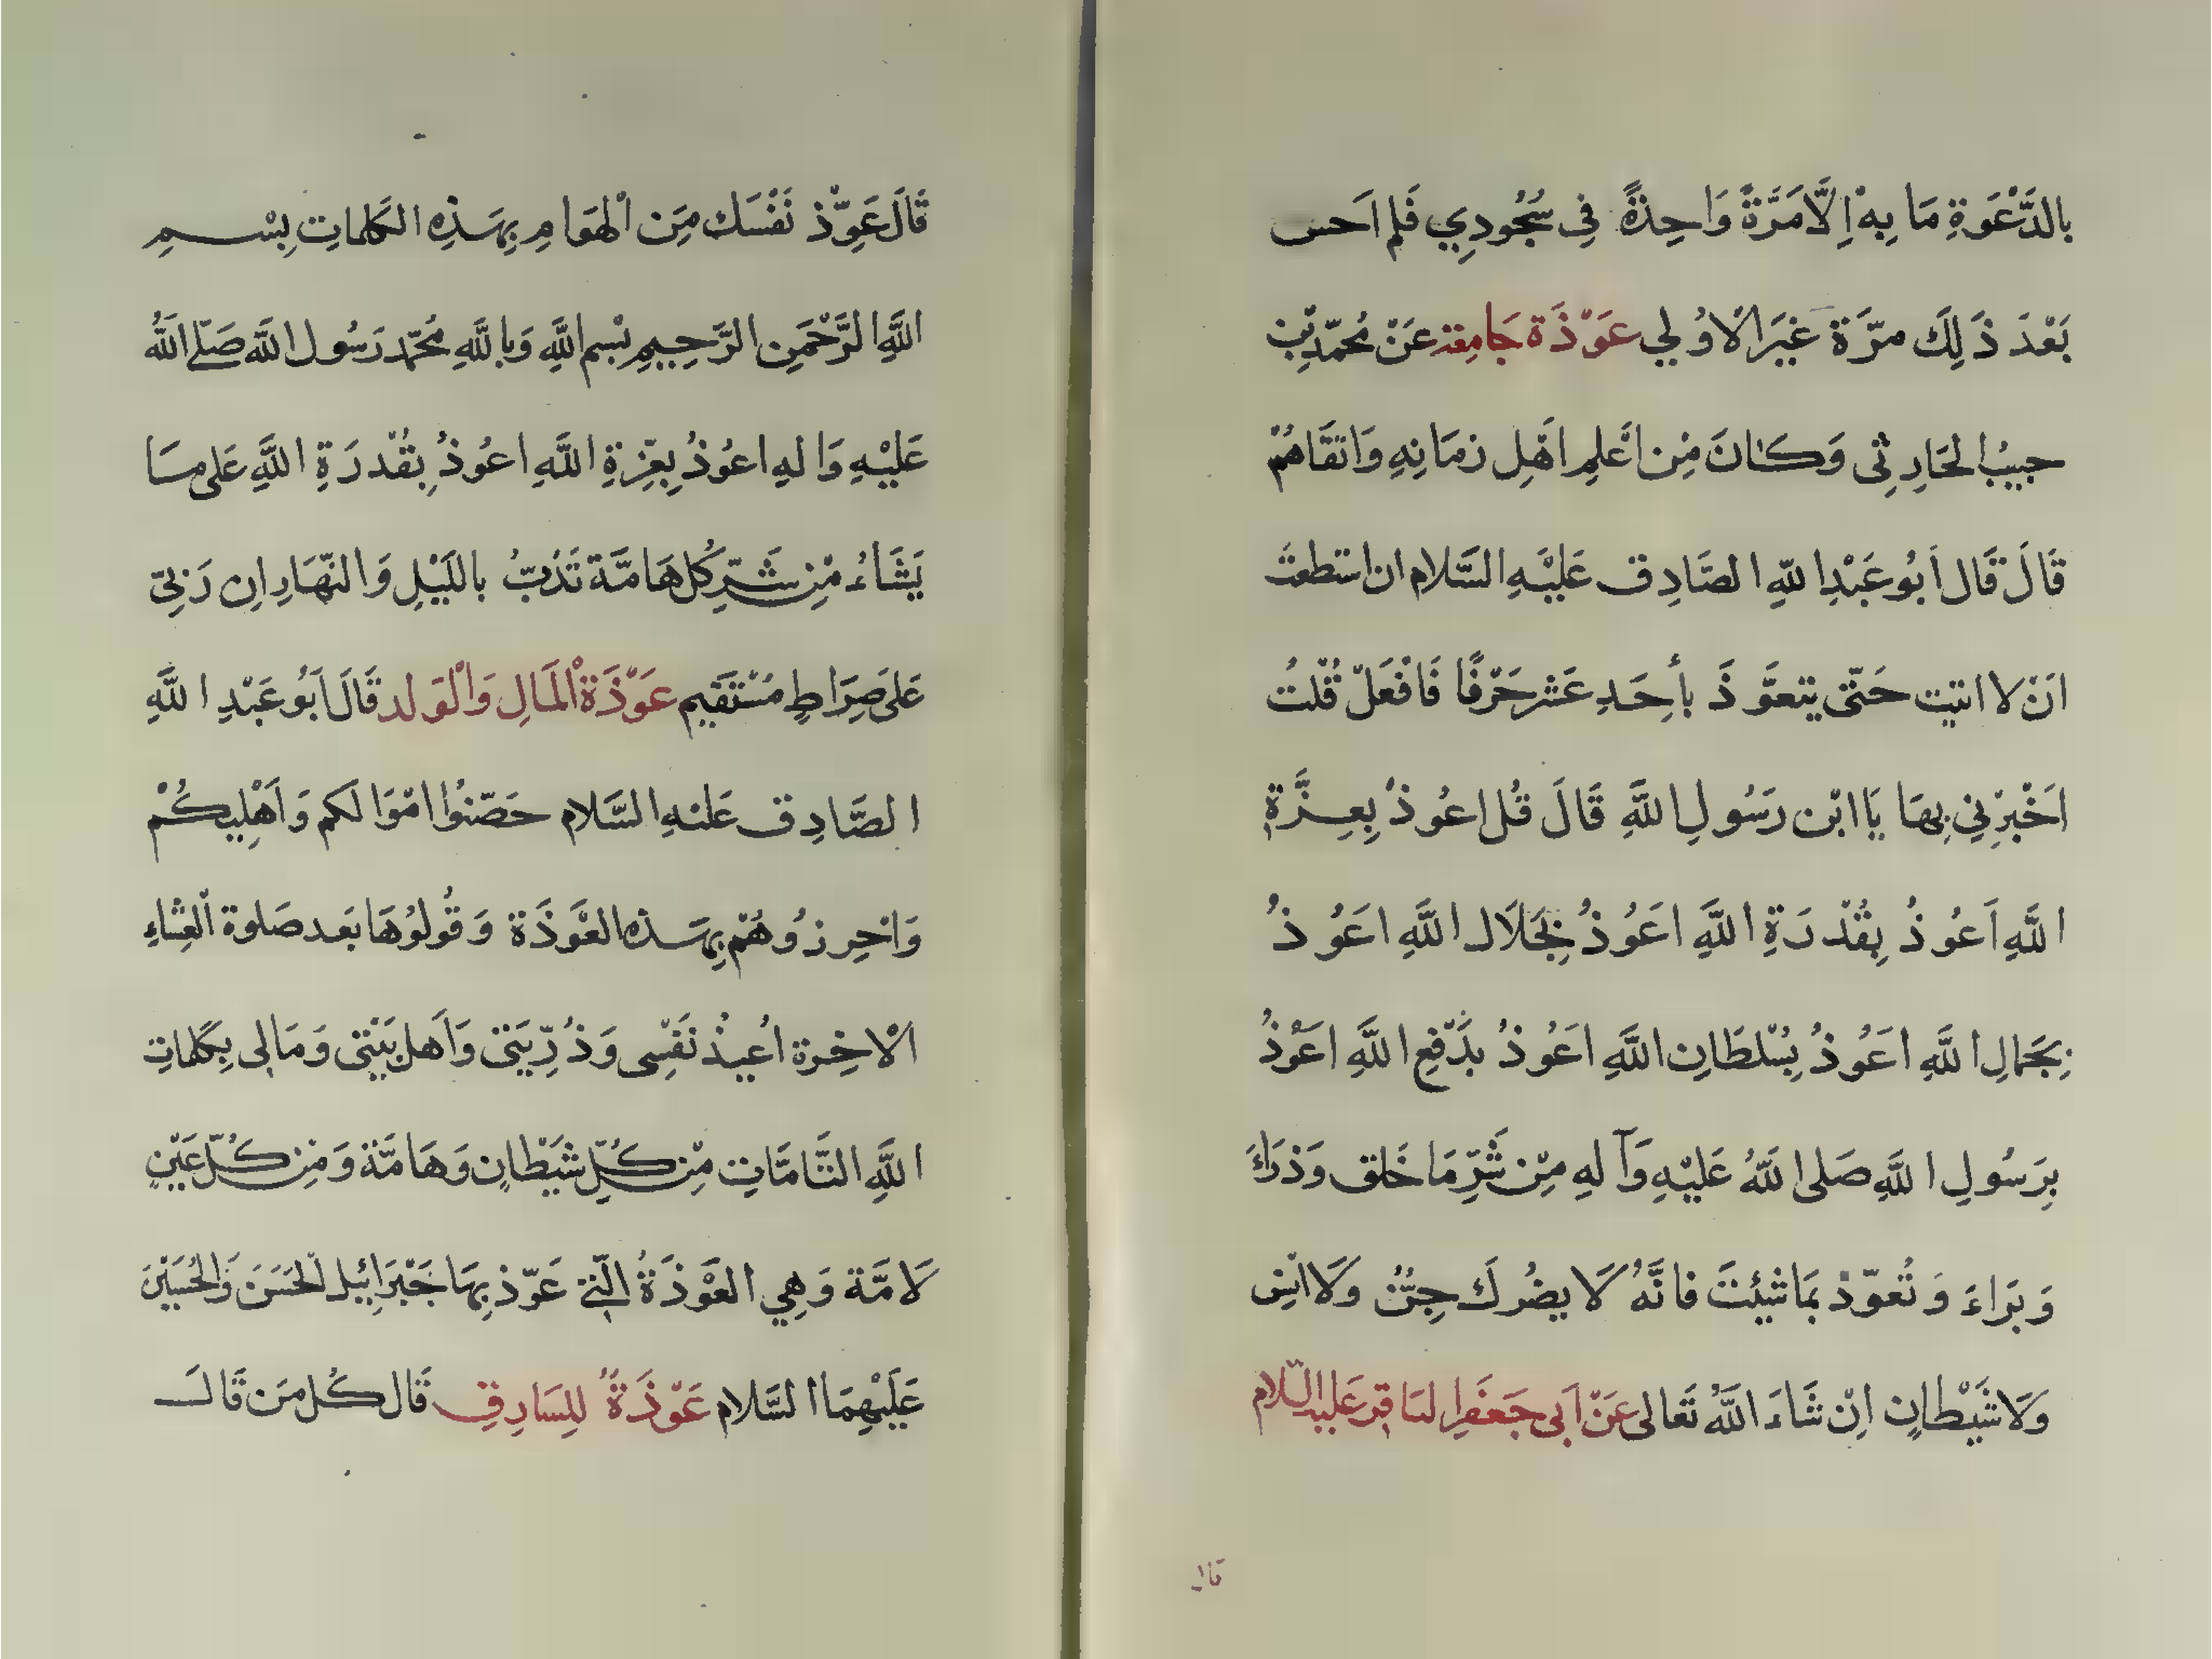 بالدَّعْوَةِ مَا بِهْ اِلَّا مَرَّةً وَاحِدَةً فِي سُجُودِي فَلم اَحس
بَعْدَ ذَلِكَ مرّةَ غيَرَ الْاوُلي عَوْذَة جَامِعَة عَنْ مُحمّد بْنِ
حبيبُ الحَارِثِى وَكَانَ مِنْ اَعْلمِ اَهْلِ زمَانِهِ وَاتقَاهُمْ
قَالَ قَال اَبُو عَبْدِ اللّهِ الصَّادِق عَلَيْهِ السَّلام ان استطعتَ
اَنْ لا اتيت حَتّى يتعوَّذَ بأحِدَ عَشر حَرْفًا فَافْعَلْ قُلتُ
اَخْبِرْنِي بِهَا يَا ابْن رَسُولِ اللَّهِ قَالَ قُل اعُوذُ بِعِزَّةِ
اللَّهِ اَعُوذُ بِقُدْرَةِ اللَّهِ اعَوُذُ بِجَلَال اللَّهِ اعَوُذُ
بِجَمالِ اللَّهِ اعَوُذُ بِسُلطَانِ اللَّهِ اعَوُذُ بدَفْعِ اللَّهِ اعَوُذُ
بِرَسُولِ اللَّهِ صَلى اللَّهُ عَليْهِ وَآلهِ مِنْ شَرِّ مَا خَلق وَذرَاَ
وَبَرَاءَ وَتُعوّذ بمَا شئِتَ فانَّهُ لَا يضُركَ جِنٌّ وَلَا انسِ
وَلَا شَيْطَانٍ اِنْ شَاءَ اللَّهُ تَعالى عَنْ اَبى جَعفَرِ الباقِر عَليه السّلام
قال
قَالَ عَوِّذْ نَفْسَك مِنَ الْهوَامِ بِهَذِهِ الكَلماتِ بِسْمِ
اللَّهِ الرَّحْمَنِ الرَّحِيمِ بْسِم اللَّهِ وَباللَّهِ مُحمّد رَسُول اللَّه صَلّے اللَّهُ
عَليْهِ وَالهِ اعوُذُ بِعِزةِ اللَّهِ اعوُذُ بِقُدْرَةِ اللَّهِ عَلى مَا
يَشَاءُ مْنِ شَرِّ كُل هَامَّة تَدُبُّ باللَيْلِ وَالنّهَارِ اِن رَبّي
عَلى صَرَاطٍ مُسْتَقَيم عَوْذَة الْمَالِ وَالْوَلد قَالَ اَبُو عَبْدِ اللَّهِ
الصَّادِق عَليْهِ السَّلام حَصّنوُا امْوَالكم وَاَهْلِيكُمْ
وَاحْرِزوُهُمْ بِهَذه العْوَذَة وَقُولوُهَا بعَد صَلوة الْعِشاءِ
الْاخِرة اُعيذُ نَفْسِى وَذُرِّيَتىَ وَاَهل بَيْتى وَمَالى بِكَلماتِ
اللَّهِ التَّامَّاتِ مْنِ كُلِّ شَيْطانٍ وَهَامَّة وَمْنِ كُلّ عَيْنٍ
لَامَّة وَهِي العْوَذَةُ الّتي عَوّذ بِهَا جَبْرَائيل الْحَسَن وَالْحُسَيْنَ
عَلَيْهِمَا السَّلام عَوْذَةُ لِلسَارِقِ قَال كُل مَن قَالَ